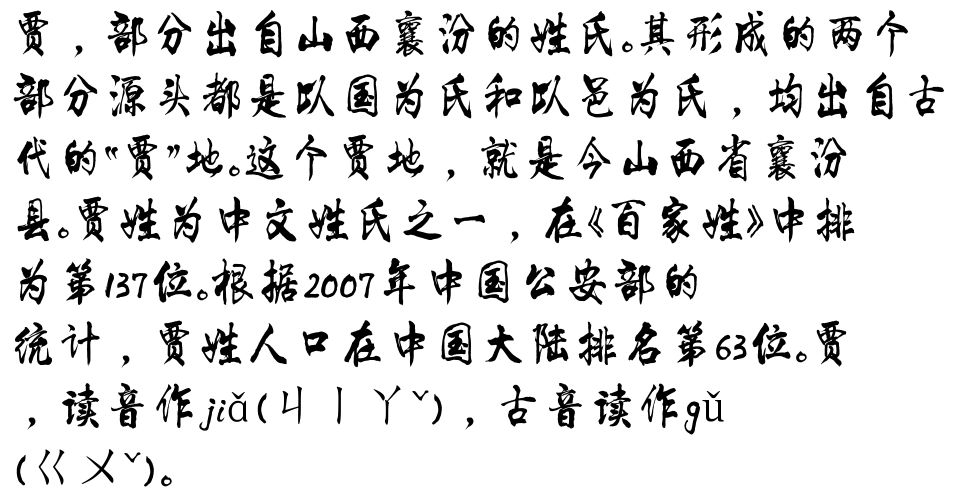 贾，部分出自山西襄汾的姓氏。其形成的两个
部分源头都是以国为氏和以邑为氏，均出自古
代的“贾”地。这个贾地，就是今山西省襄汾
县。贾姓为中文姓氏之一，在《百家姓》中排
为第137位。根据2007年中国公安部的
统计，贾姓人口在中国大陆排名第63位。贾
，读音作jiǎ(ㄐㄧㄚˇ)，古音读作gǔ
(ㄍㄨˇ)。